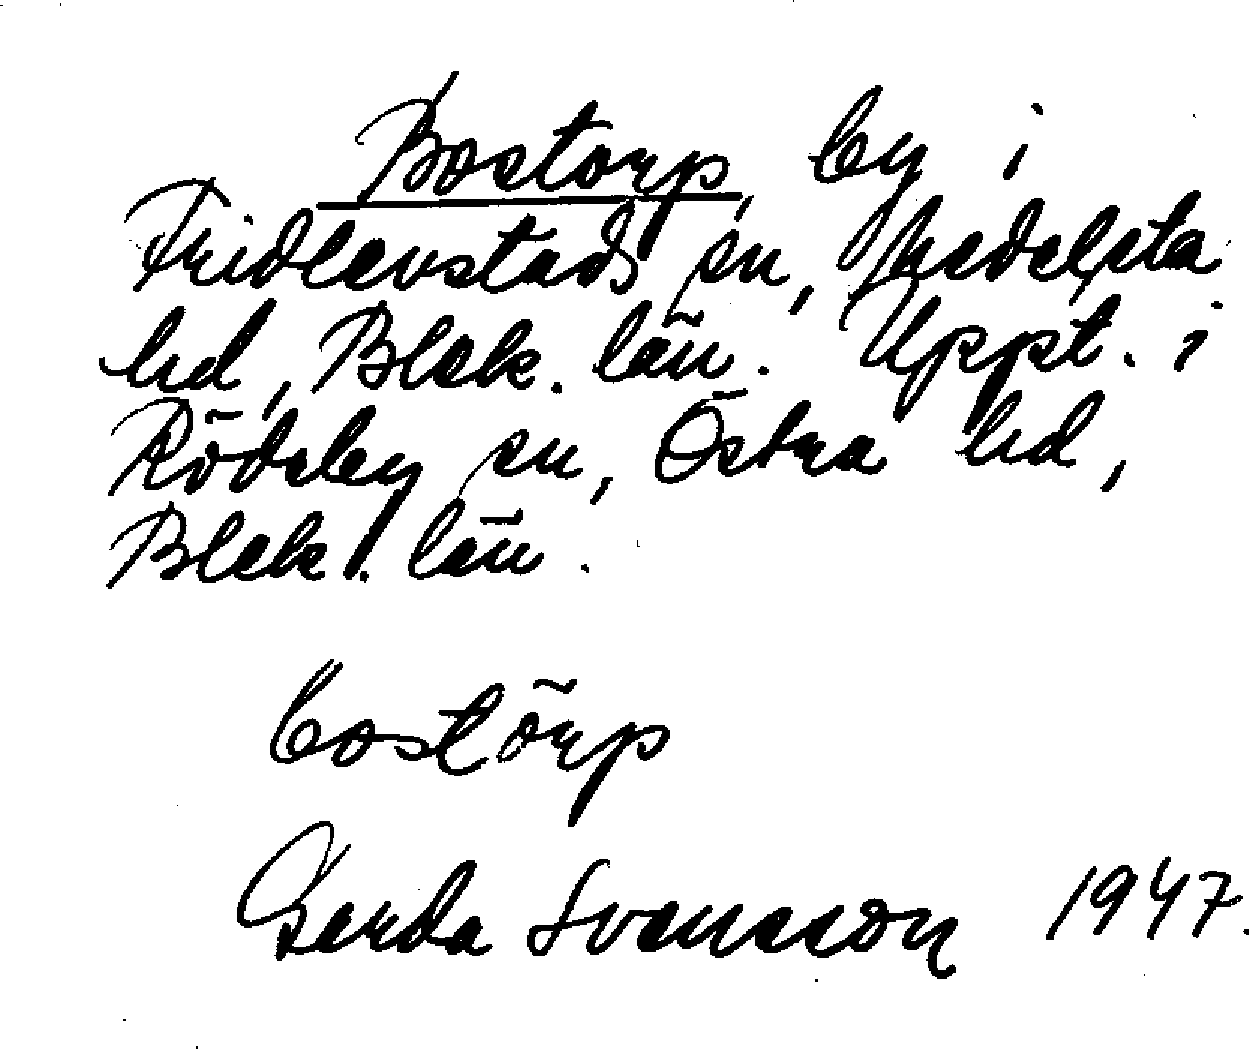 Bostorp, by i
Fridlevstads sn, Medelsta
hd, Blek. län. Uppt. i
Rödeby sn, Östra hd,
Blek. län.
bostörp
Gerda Svensson 1947.